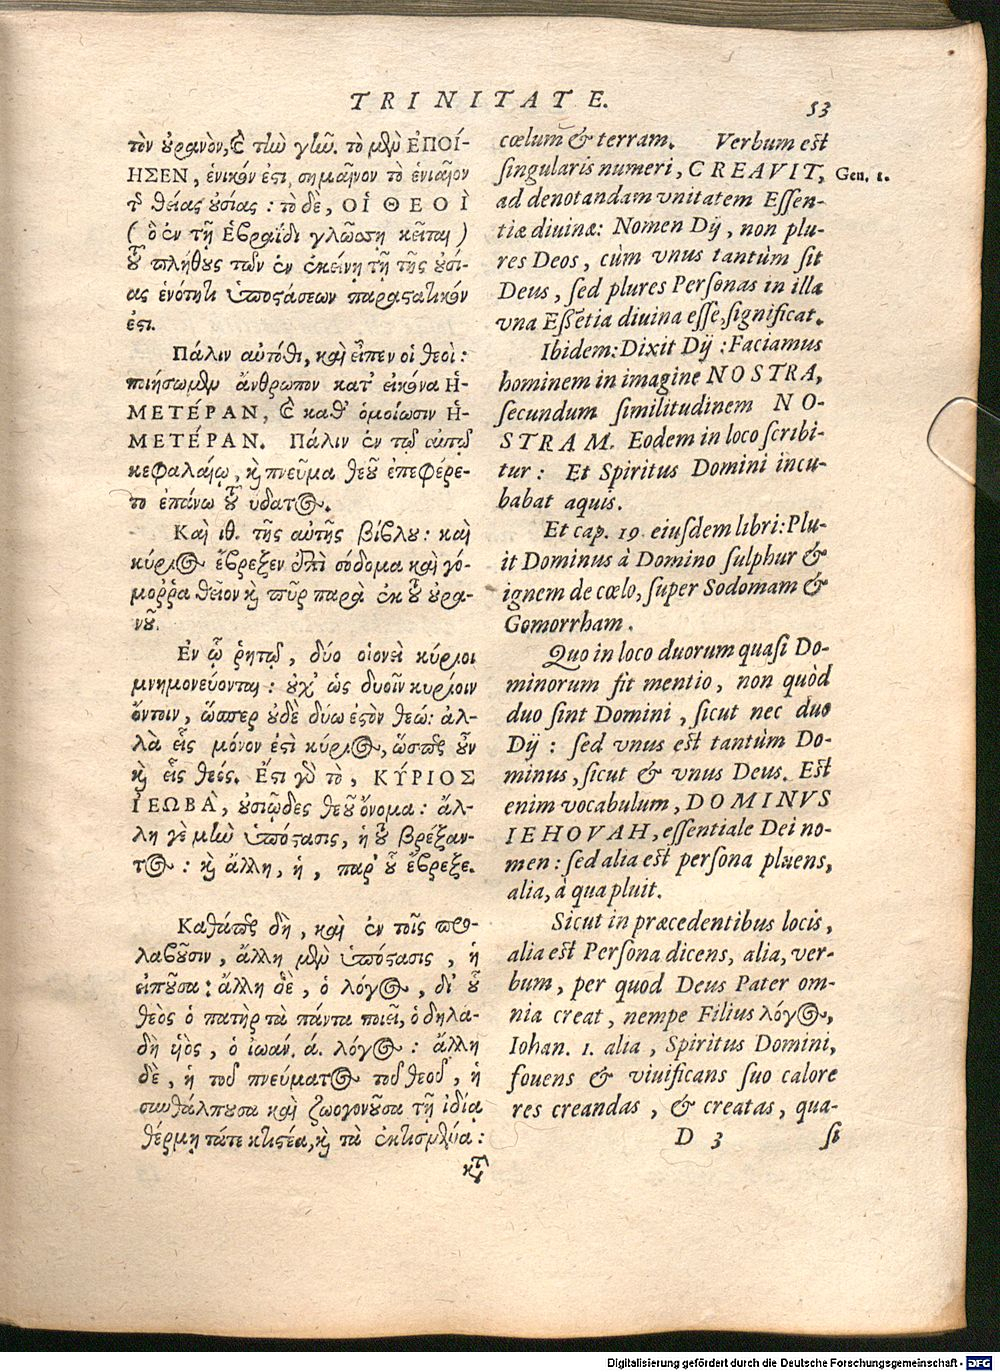 TRINITATE.
53
τὸν οὐρανὸν, καὶ τὴν γῆν. τὸ μὲν ἘΠΟΊ-
ΗΣΕΝ, ἑνικόν ἐστι, σημαῖνον τὸ ἑνιαῖον
τῆς θείας οὐσίας : τὸ δὲ, ΟἹ ΘΕΟῚ
( ὃ ἐν τῇ Ἑβραΐδι γλώσσῃ κεῖται )
τοῦ πλήθους τῶν ἐν ἐκείνῃ τῇ τῆς οὐσί-
ας ἑνότητι ὑποστάσεων παραστατικόν
ἐστι.
Πάλιν αὐτόθι, καὶ εἶπεν οἱ θεοὶ :
ποιήσωμεν ἄνθρωπον κατ' εἰκόνα Ἡ-
ΜΕΤΈΡΑΝ, καὶ καθ' ὁμοίωσιν Ἡ-
ΜΕΤΈΡΑΝ. Πάλιν ἐν τῷ αὐτῷ
κεφαλαίῳ, καὶ πνεῦμα θεοῦ ἐπεφέρε-
το ἐπάνω τοῦ ὕδατος.
Καὶ ιθ. τῆς αὐτῆς βίβλου : καὶ
κύριος ἔβρεξεν ἐπὶ σόδομα καὶ γό-
μορῤα θεῖον καὶ πῦρ παρὰ ἐκ τοῦ οὐρα-
νοῦ.
Ἐν ᾧ ῥητῷ, δύο οἱονεὶ κύριοι
μνημονεύονται : οὐχ' ὡς δυοῖν κυρίοιν
ὄντοιν, ὥσπερ οὐδὲ δύω ἐστὸν θεώ : ἀλ-
λὰ εἷς μόνον ἐστὶ κύριος, ὥσπερ οὖν
καὶ εἷς θεός. Ἔστι γὰρ τὸ, ΚΎΡΙΟΣ
ἸΕΩΒᾺ, οὐσιῶδες θεοῦ ὄνομα : ἄλ-
λη γὲ μὴν ὑπόστασις, ἡ τοῦ βρέξαν-
τος : καὶ ἄλλη, ἡ, παρ' οὗ ἔβρεξε.
Καθάπερ δὴ, καὶ ἐν τοῖς προ-
λαβοῦσιν, ἄλλη μὲν ὑπόστασις, ἡ
εἰποῦσα : ἄλλη δὲ, ὁ λόγος, δι' οὗ
θεὸς ὁ πατὴρ τὰ πάντα ποιεῖ, ὁ δηλα-
δὴ υἱὸς, ὁ ἰωάν. ά. λόγος : ἄλλη
δὲ, ἡ τοῦ πνεύματος τοῦ θεοῦ, ἡ
συνθάλπουσα καὶ ζωογονοῦσα τῇ ἰδίᾳ
θέρμῃ τάτε κτιστέα, καὶ τὰ ἐκτισμένα :
κτοῦ
cœlum & terram. Verbum est
singularis numeri, CREAVIT,
ad denotandam vnitatem Essen-
tiæ diuinæ: Nomen Dij, non plu-
res Deos, cùm vnus tantùm sit
Deus, sed plures Personas in illa
vna Essẽtia diuina esse, significat.
Ibidem: Dixit Dij : Faciamus
hominem in imagine NOSTRA,
secundum similitudinem NO-
STRAM. Eodem in loco scribi-
tur : Et Spiritus Domini incu-
babat aquis.
Et cap. 19. eiusdem libri: Plu-
it Dominus à Domino sulphur &
ignem de cœlo, super Sodomam &
Gomorrham.
Quo in loco duorum quasi Do-
minorum fit mentio, non quòd
duo sint Domini, sicut nec duo
Dij : sed vnus est tantùm Do-
minus, sicut & vnus Deus. Est
enim vocabulum, DOMINVS
IEHOVAH, essentiale Dei no-
men : sed alia est persona pluens,
alia, à qua pluit.
Sicut in præcedentibus locis,
alia est Persona dicens, alia, ver-
bum, per quod Deus Pater om-
nia creat, nempe Filius λόγος,
Iohan. 1. alia, Spiritus Domini,
fouens & viuificans suo calore
res creandas, & creatas, qua-
D 3
si
Gen. 1.
Digitalisierung gefördert durch die Deutsche Forschungsgemeinschaft - DFG